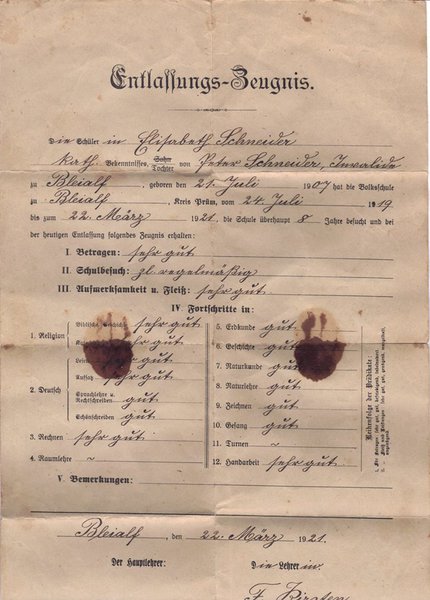 Entlassungs-Zeugnis.
Die Schülerin Elisabeth Schneider
kath. Bekenntnisses, Sohn Tochter von Peter Schneider, Invalide
zu Bleialf, geboren den 21. Juli 1907 hat die Volksschule
zu Bleialf, Kreis Prüm, vom 24. Juli 1919
bis zum 22. März 1921, die Schule überhaupt 8 Jahre besucht und bei
der heutigen Entlassung folgendes Zeugnis erhalten:
I. Betragen: sehr gut
II. Schulbesuch: zl. regelmäßig
III. Aufmerksamkeit u. Fleiß: sehr gut
IV. Fortschritte in:
1. Religion
Biblische sehr gut
sehr gut
2. Deutsch
Lesen sehr gut
Aufsatz sehr gut
Sprachlehre u. Rechtschreiben gut
Schönschreiben gut
3. Rechnen sehr gut
4. Raumlehre "
5. Erdkunde gut
6. Geschichte gut
7. Naturkunde gut
8. Naturlehre gut
9. Zeichnen gut
10. Gesang gut
11. Turnen "
12. Handarbeit sehr gut
Reihenfolge der Prädikate
V. Bemerkungen:
Bleialf, den 22. März 1921.
Der Hauptlehrer: Die Lehrerin:
F. Kirsten